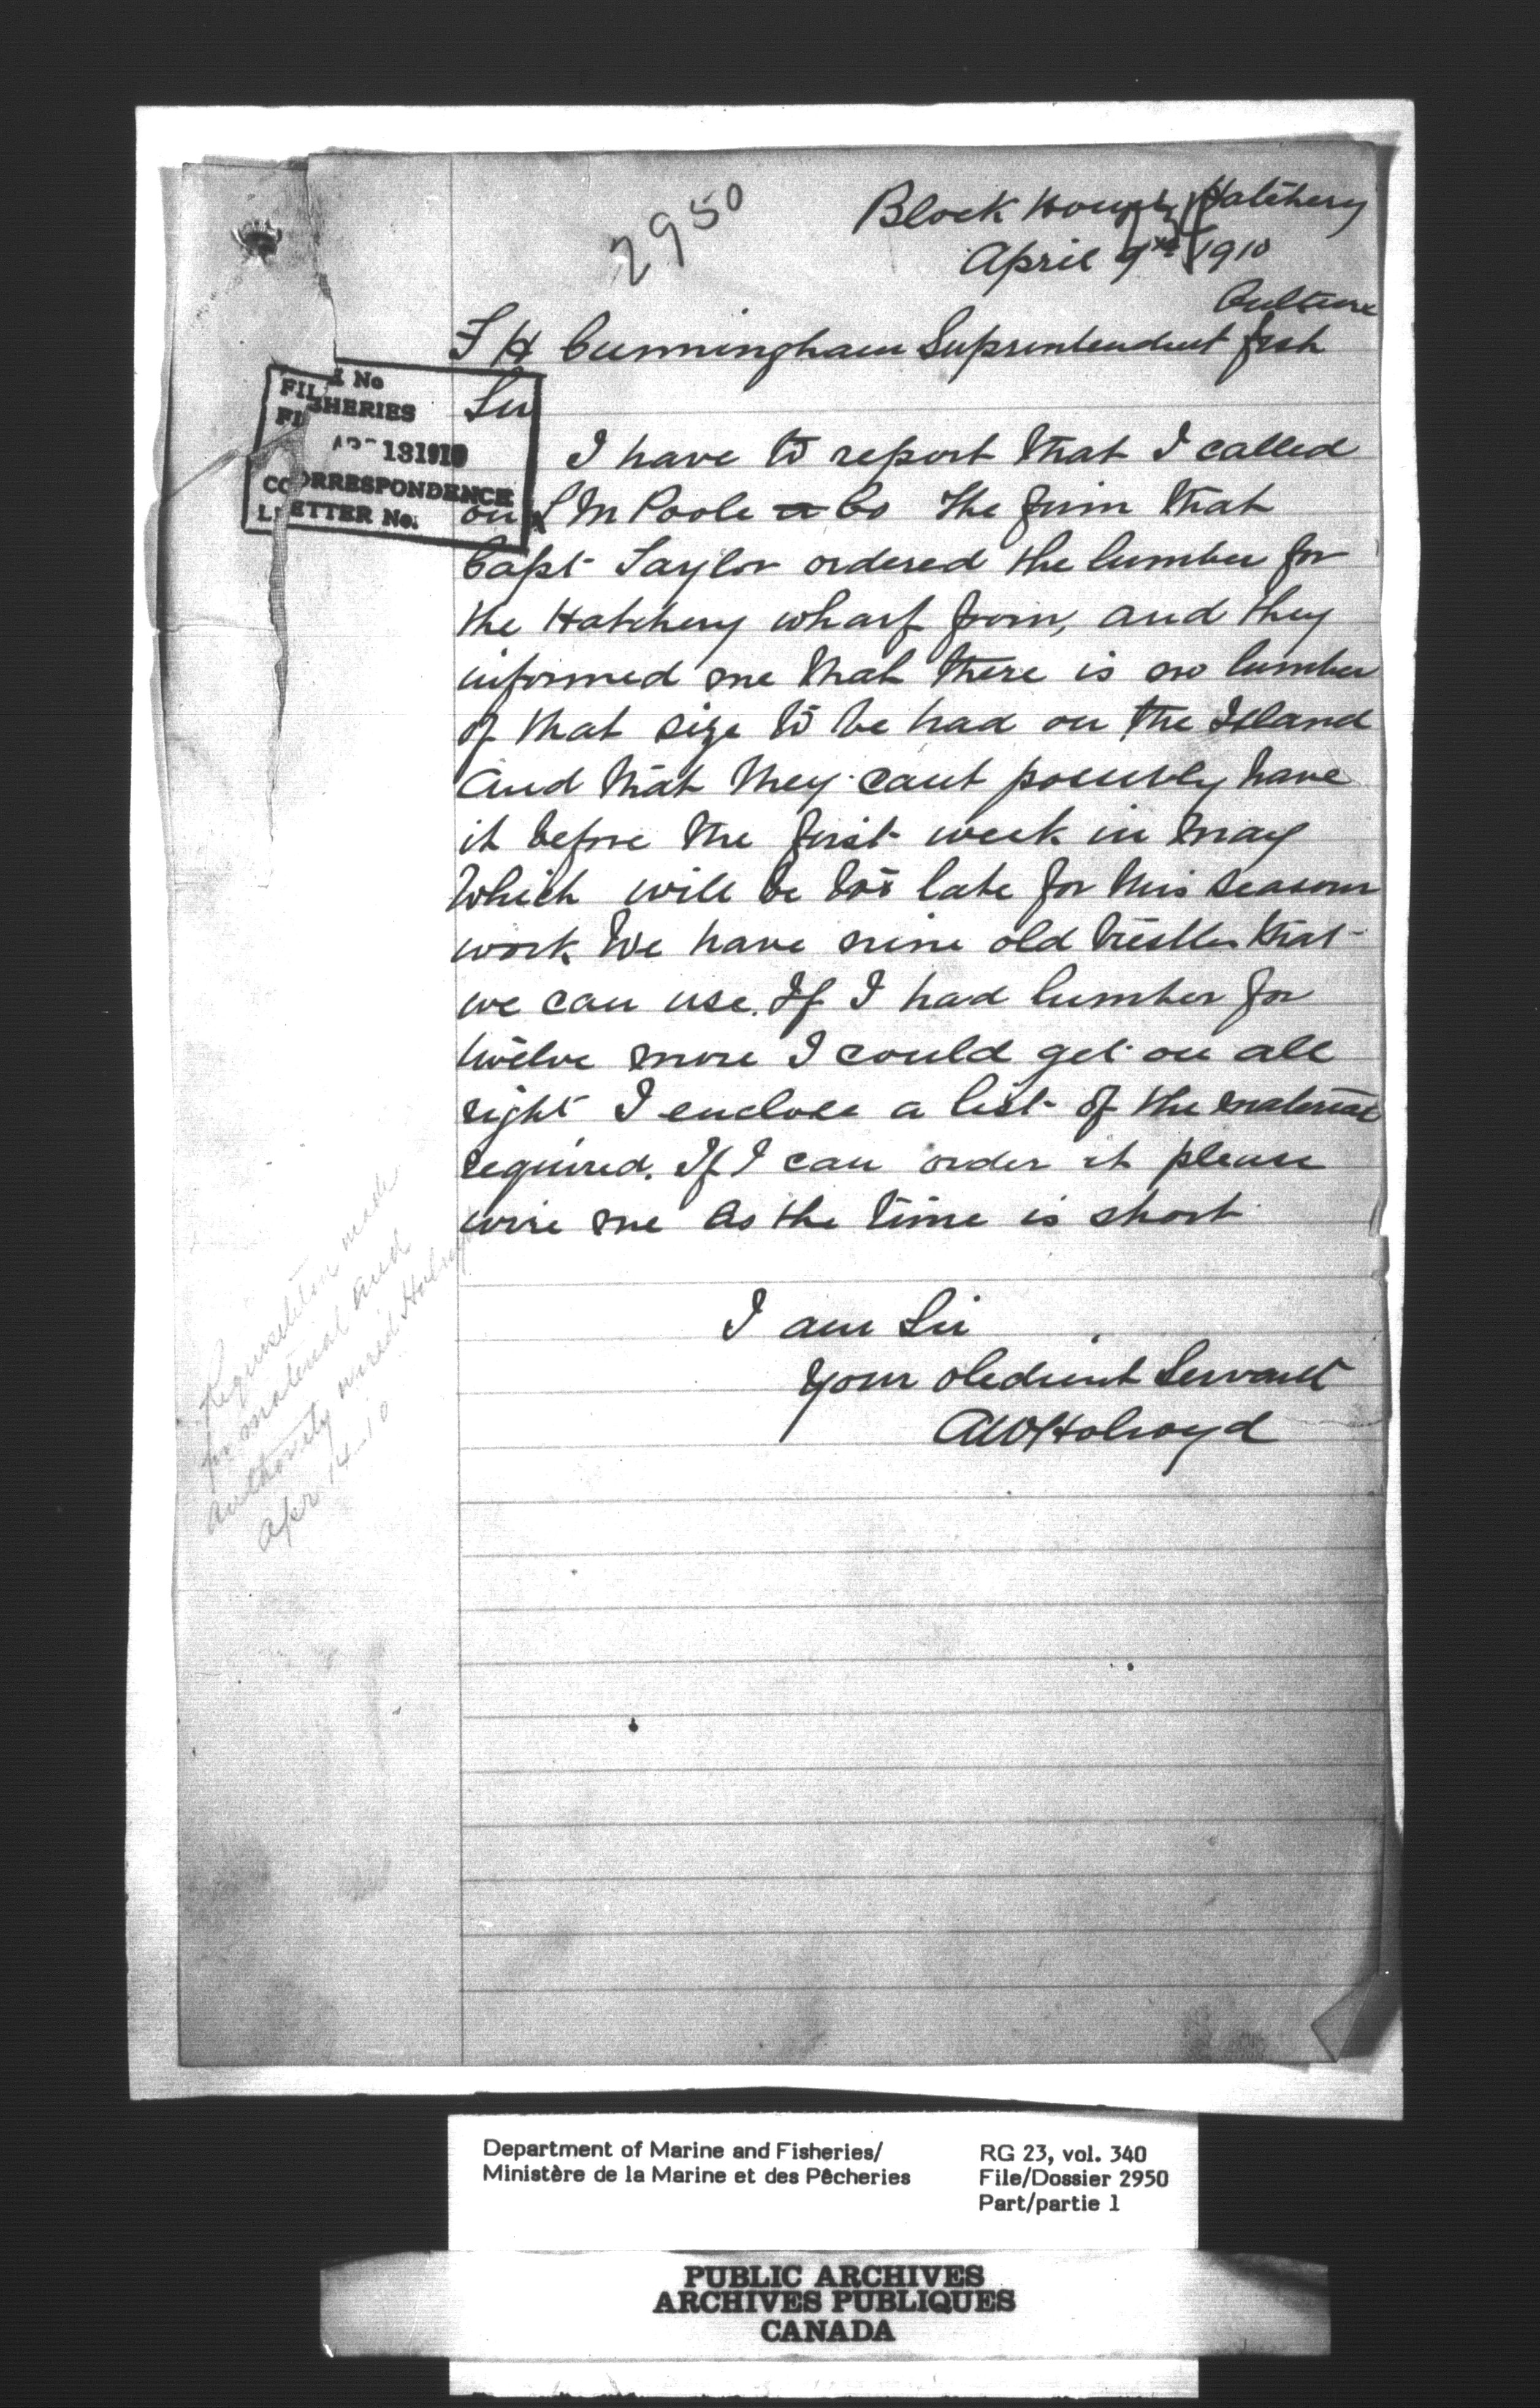 2950
Block House Hatchery
April 9th 1910
Culture
F H Cunningham Suprintendent fish
Sir
FILE No
FISHERIES
APR 13 1910
CORRESPONDENCE
LETTER No.
I have to report that I called
on L M Poole & Co The firm that
Capt Taylor ordered the lumber for
the Hatchery wharf from, and they
informed me that there is no lumber
of that size to be had on the Island
And that they cant possibly have
it before the first week in May
Which will be too late for this seasons
work. We have nine old trestles that
we can use. If I had lumber for
twelve more I could get on all
right I enclose a list of the material
required. If I can order it please
wire me as the time is short
I am Sir
Your obedient Servant
AWHolroyd
Requisition made
for material and
authority wired Holroyd
Apr 14-10
Department of Marine and Fisheries/
Ministère de la Marine et des Pêcheries
RG 23, vol. 340
File/Dossier 2950
Part/partie 1
PUBLIC ARCHIVES
ARCHIVES PUBLIQUES
CANADA